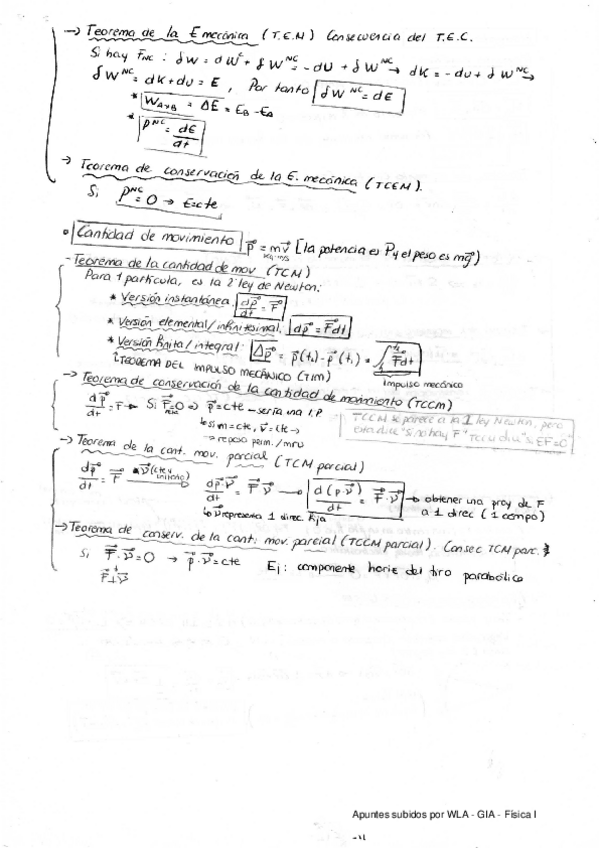 → Teorema de la E mecánica (T.E.M) Consecuencia del T.E.C.
Si hay F_NC : δW = δW^C + δW^NC = -dU + δW^NC → dK = -dU + δW^NC →
δW^NC = dK + dU = E , Por tanto δW^NC = dE
* W_A→B = ΔE = E_B - E_A
* P^NC = dE/dt
→ Teorema de conservación de la E. mecánica (TCEM).
Si P^NC = 0 → E = cte
• Cantidad de movimiento p⃗ = m v⃗ [la potencia es P y el peso es mg⃗)
kg·m/s
- Teorema de la cantidad de mov (TCM)
Para 1 partícula, es la 2ª ley de Newton:
* Versión instantánea: dp⃗/dt = F⃗
* Versión elemental/infinitesimal: dp⃗ = F⃗dt
* Versión finita/integral: Δp⃗ = p⃗(t₂) - p⃗(t₁) = ∫ F⃗dt
TEOREMA DEL IMPULSO MECÁNICO (TIM) Impulso mecánico
→ Teorema de conservación de la cantidad de movimiento (TCCM)
dp⃗/dt = F⃗ → Si F⃗ = 0 ⇒ p⃗ = cte - sería una I.P
↳ si m = cte, v⃗ = cte →
→ reposo perm. / mru
TCCM se parece a la 1 ley Newton, pero
esta dice "si no hay F" y TCCM dice "si ΣF=0"
→ Teorema de la cant. mov. parcial (TCM parcial)
dp⃗/dt = F⃗ · ν⃗ (cte y unitario) → dp⃗·ν⃗/dt = F⃗ ν⃗ → d(p⃗·ν⃗)/dt = F⃗·ν⃗ → obtener una proy de F
↳ ν⃗ representa 1 direc. fija a 1 direc (1 compo)
→ Teorema de conserv. de la cant. mov. parcial (TCCM parcial). Consec TCM parc.
Si F⃗·ν⃗ = 0 → p⃗·ν⃗ = cte Ej: componente horiz del tiro parabólico
F⃗ ⊥ ν⃗
Apuntes subidos por WLA - GIA - Física I